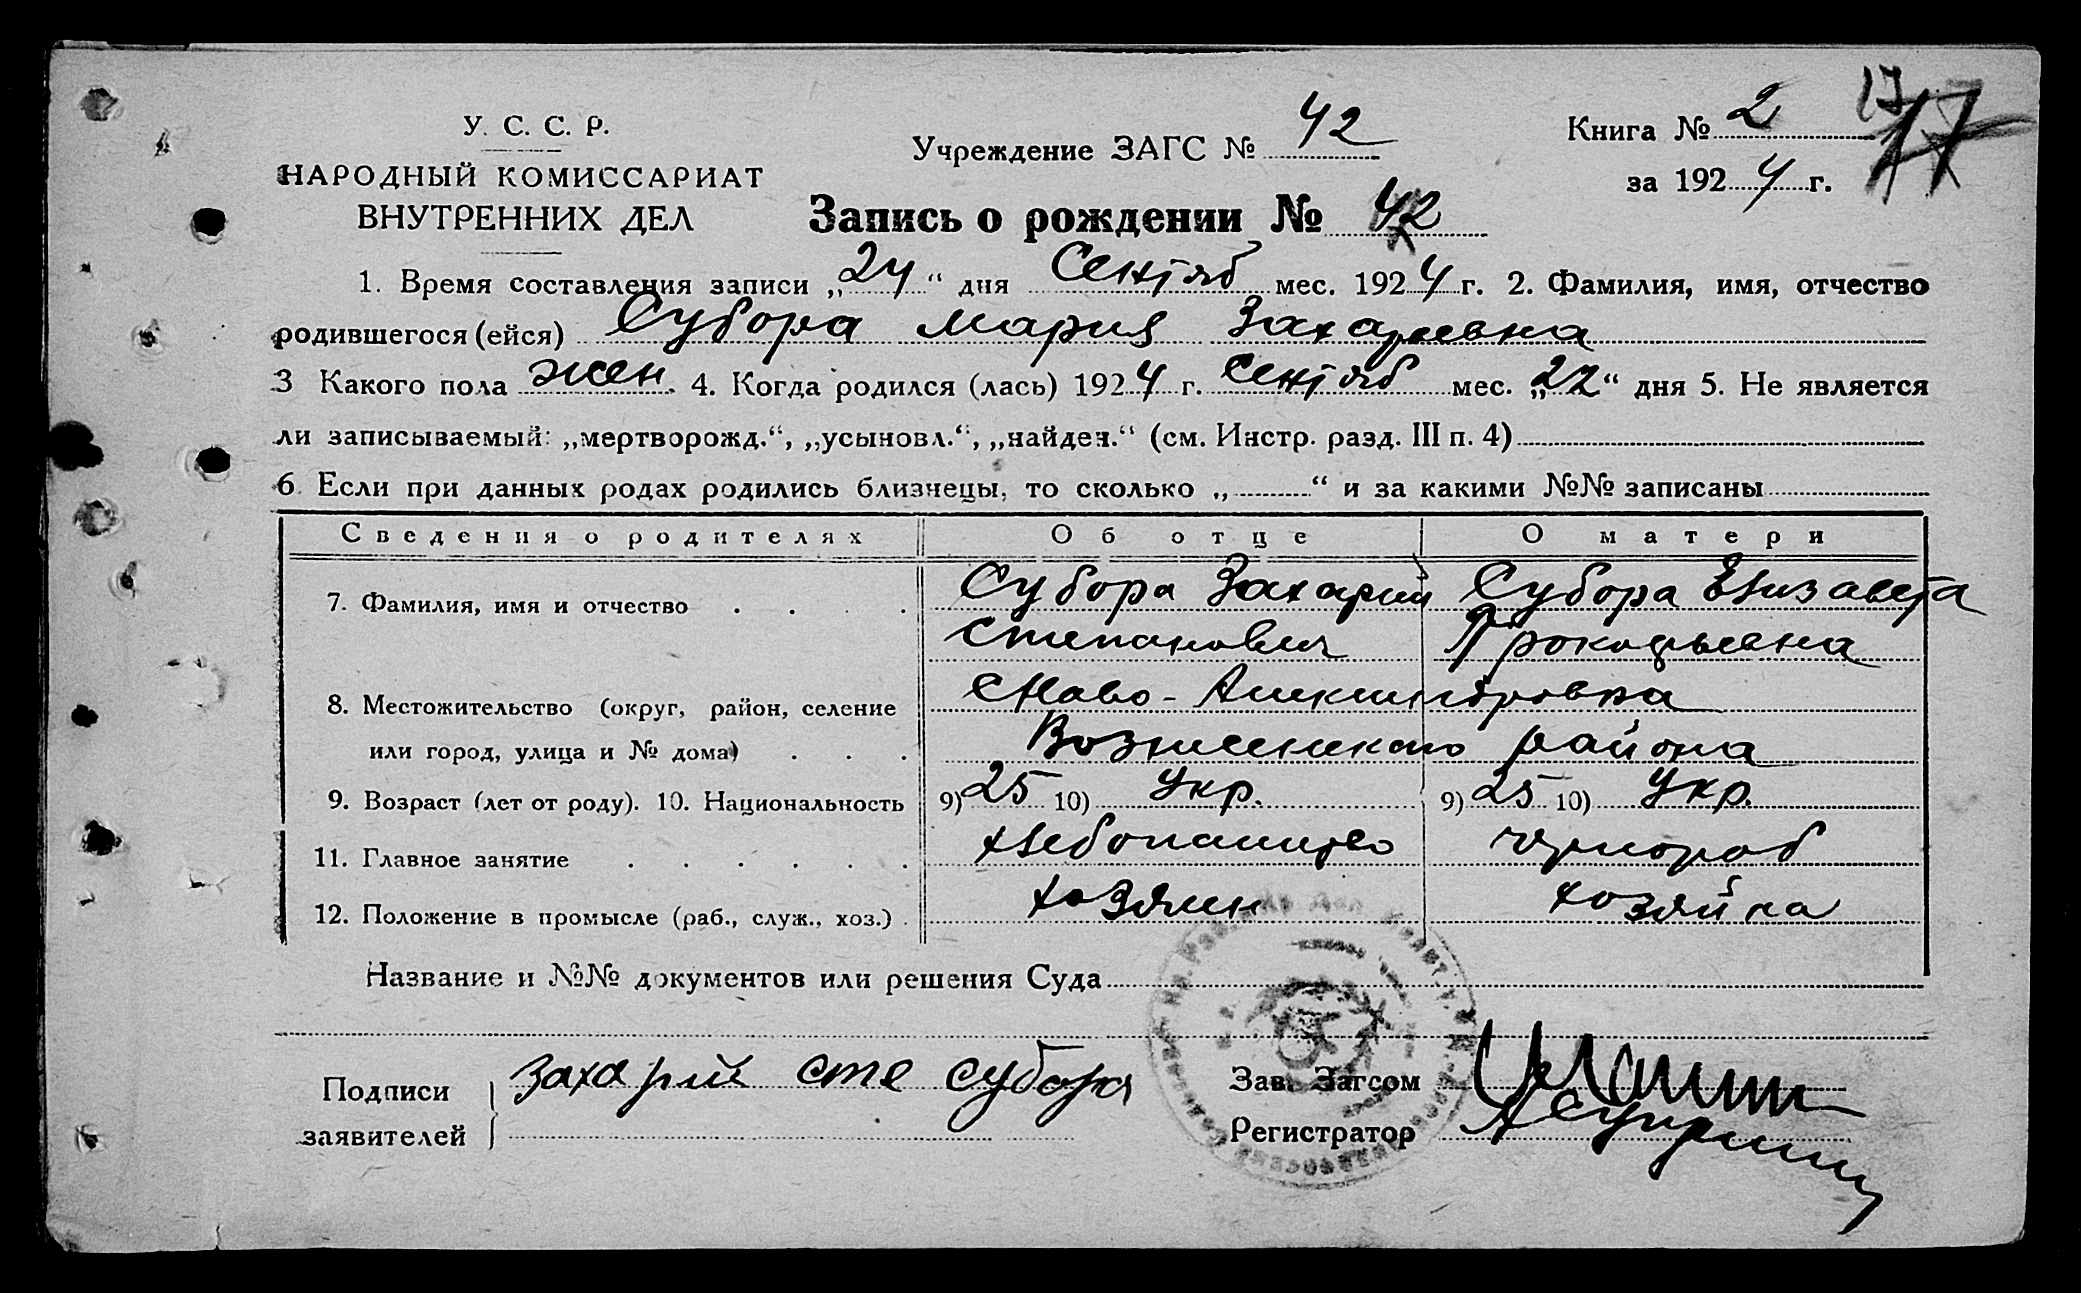 17
17
У. С. С. Р.
НАРОДНЫЙ КОМИССАРИАТ
ВНУТРЕННИХ ДЕЛ
Учреждение ЗАГС № 42
Книга № 2
за 1924 г.
Запись о рождении № 42
1. Время составления записи „24“ дня Сентяб мес. 1924 г. 2. Фамилия, имя, отчество
родившегося (ейся) Субора Мария Захарьевна
3 Какого пола жен. 4. Когда родился (лась) 1924 г. Сентяб мес. „22“ дня 5. Не является
ли записываемый: „мертворожд.“, „усыновл.“, „найден.“ (см. Инстр. разд. III п. 4)
6. Если при данных родах родились близнецы, то сколько „ “ и за какими №№ записаны
Сведения о родителях Об отце О матери
7. Фамилия, имя и отчество Субора Захарий Субора Елизавета
Степанович Прокофьевна
8. Местожительство (округ, район, селение
или город, улица и № дома) района
9. Возраст (лет от роду). 10. Национальность 9) 25 10) Укр. 9) 25 10) Укр.
11. Главное занятие чернораб
12. Положение в промысле (раб., служ., хоз.) хозяин хозяйка
Название и №№ документов или решения Суда
Подписи захарий сте субора
заявителей
Зав. Загсом
Регистратор